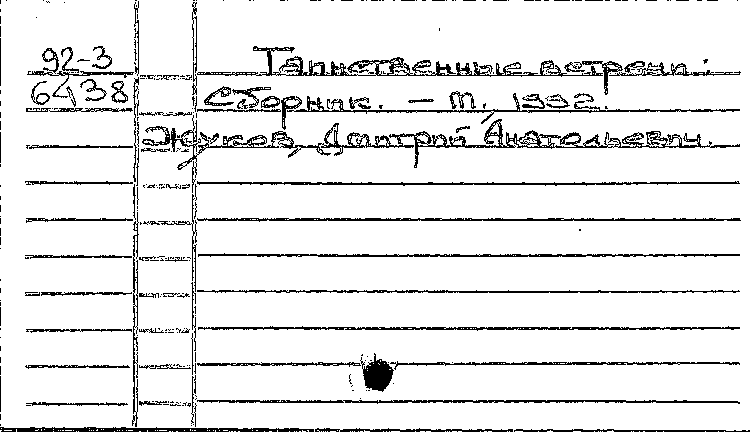 92-3 Таинственные встречи:
6438 Сборник. – М., 1992.
Жуков, Дмитрий Анатольевич.